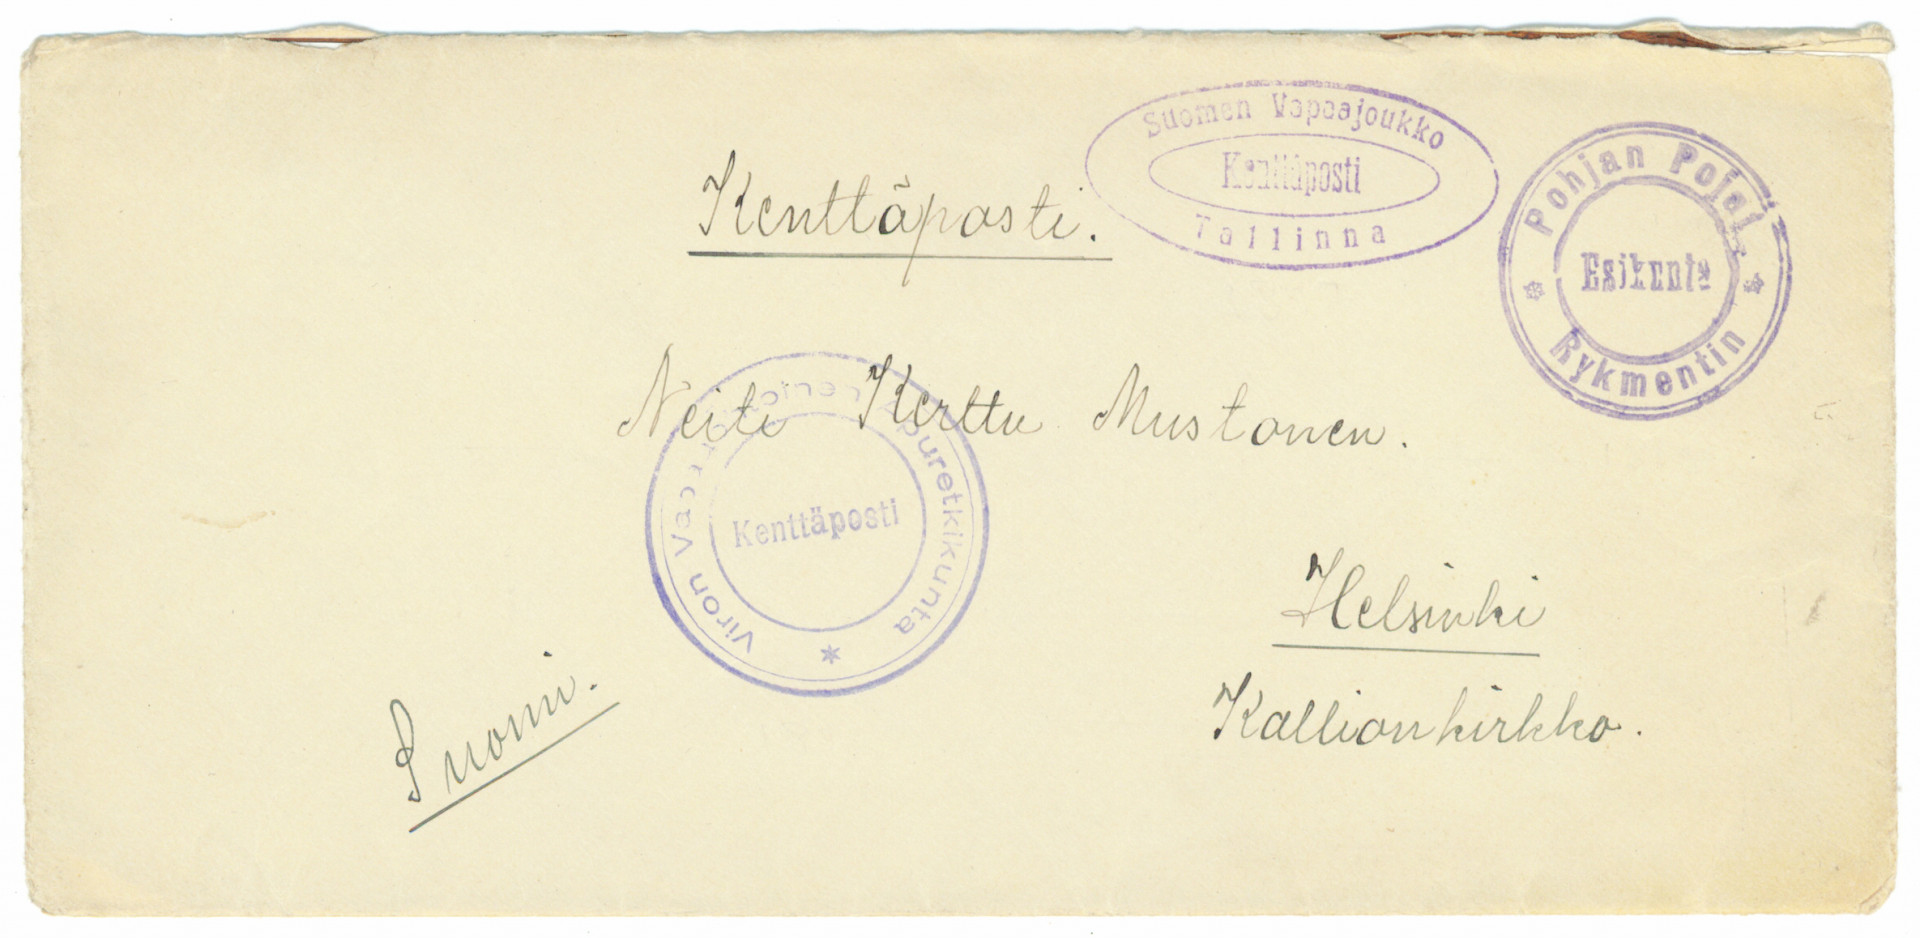 Suomen Vapaajoukko
Kenttäposti
Tallinna
Pohjan Pojat
Esikunta
Rykmentin
Kenttäposti.
Neiti Kerttu Mustonen.
Viron Apuretkikunta
Kenttäposti
Helsinki
Kallionkirkko.
Suomi.